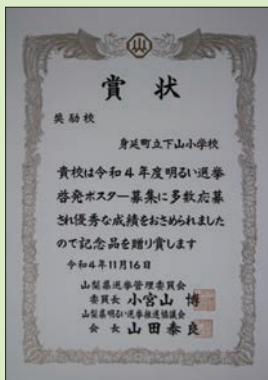 賞状
奨励校
身延町立下山小学校
貴校は令和4年度明るい選挙
啓発ポスター募集に多数応募
され優秀な成績をおさめられました
ので記念品を贈り賞します
令和4年11月16日
山梨県選挙管理委員会
委員長 小宮山 博
山梨県明るい選挙推進協議会
会長 山田泰良